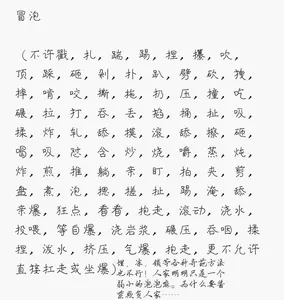 冒泡
(不许戳，扎，踹，踢，捏，爆，吹，
顶，踩，砸，剁，扑，趴，劈，砍，拽，
摔，啃，咬，撕，拖，扔，压，撞，吃，
碾，拉，打，吞，丢，掐，捅，扯，吸，
揉，炸，轧，舔，摸，滚，舔，擦，砸，
喝，吸，怼，含，炒，烧，嚼，蒸，炖，
炸，煎，推，躺，亲，盯，拍，夹，剪，
盘，煮，泡，摁，搓，扯，踢，淹，舔，
亲爆，狂点，看看，抱走，滚动，浇水，
投喂，等自爆，浇岩浆，碾压，吞咽，揉
捏，泼水，挤压，气爆，抱走，更不允许
直接扛走或坐爆)
捏，冻，锁等各种奇葩方法
也不行！人家明明只是一个
弱小的泡泡嘛。为什么要蓄
意戳爆人家……